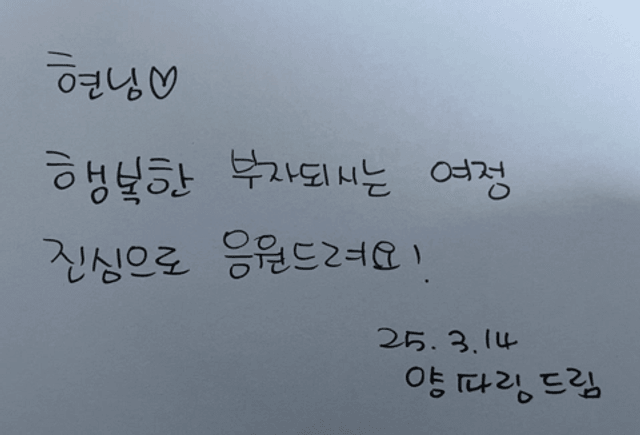 현님♡
행복한 부자되시는 여정
진심으로 응원드려요!
25.3.14
양파링드림